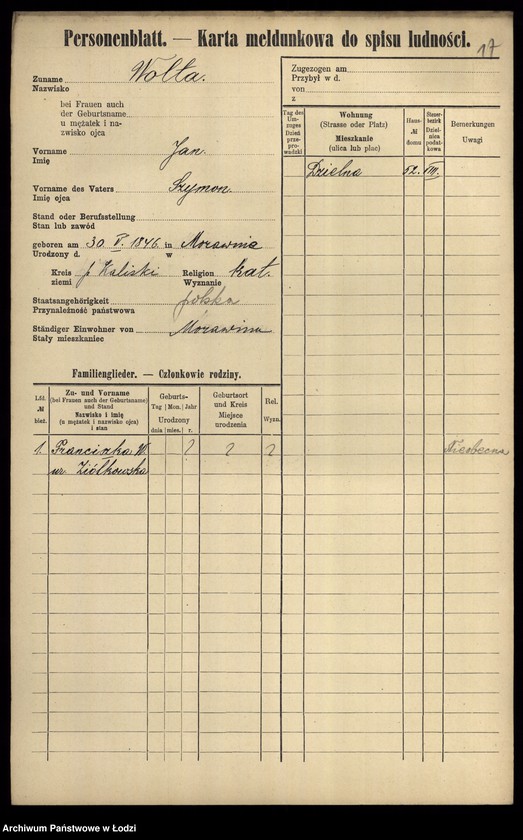 Personenblatt. — Karta meldunkowa do spisu ludności.
17
Zuname Wolta.
Nazwisko
bei Frauen auch
der Geburtsname
u mężatek i na-
zwisko ojca
Vorname Jan.
Imię
Vorname des Vaters Szymon.
Imię ojca
Stand oder Berufsstellung
Stan lub zawód
geboren am 30. V. 1846. in Morawina
Urodzony d. w
Kreis p. Kaliski Religion kat.
ziemi Wyznanie
Staatsangehörigkeit polska
Przynależność państwowa
Ständiger Einwohner von Morawina
Stały mieszkaniec
Zugezogen am
Przybył w d.
von
z
Tag des Um-
zuges
Dzień
prze-
prowadzki
Wohnung
(Strasse oder Platz)
Mieszkanie
(ulica lub plac)
Haus-
№
domu
Steuer-
bezirk
Dziel-
nica
podat-
kowa
Bemerkungen
Uwagi
Dzielna 52. VIII.
Familienglieder. — Członkowie rodziny.
Lfd.
№
bież.
Zu- und Vorname
(bei Frauen auch der Geburtsname)
und Stand
Nazwisko i imię
(u mężatek i nazwisko ojca)
i stan
Geburts-
Tag Mon. Jahr
Urodzony
dnia mies. r.
Geburtsort
und Kreis
Miejsce
urodzenia
Rel.
Wyzn.
1. Franciszka W. ? ? ? Nieobecna
ur. Ziółkowska
Archiwum Państwowe w Łodzi